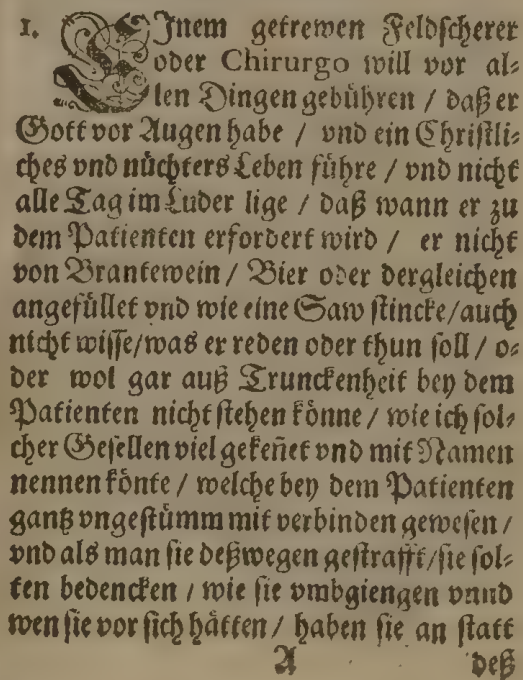 1. EJnem getrewen Feldscherer
oder Chirurgo will vor al⸗
len Dingen gebühren / daß er
Gott vor Augen habe / vnd ein Christli⸗
ches vnd nüchters Leben führe / vnd nicht
alle Tag im Luder lige / daß wann er zu
dem Patienten erfordert wird / er nicht
von Brantewein / Bier oder dergleichen
angefüllet vnd wie eine Saw stincke/auch
nicht wisse/was er reden oder thun soll / o⸗
der wol gar auß Trunckenheit bey dem
Patienten nicht stehen könne / wie ich sol⸗
cher Gesellen viel gekeñet vnd mit Namen
nennen könte / welche bey dem Patienten
gantz vngestümm mit verbinden gewesen /
vnd als man sie deßwegen gestrafft/sie sol⸗
ten bedencken / wie sie vmbgiengen vnnd
wen sie vor sich hätten / haben sie an statt
A deß